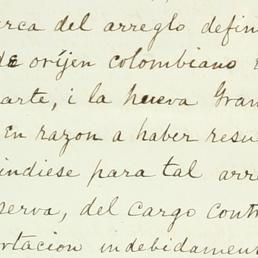 erca del arreglo defin
de oríjen colombiano
arte, i la nueva Gran
En razon a haber resu
indiese para tal arr
serva, del cargo contr
rtacion indebidament